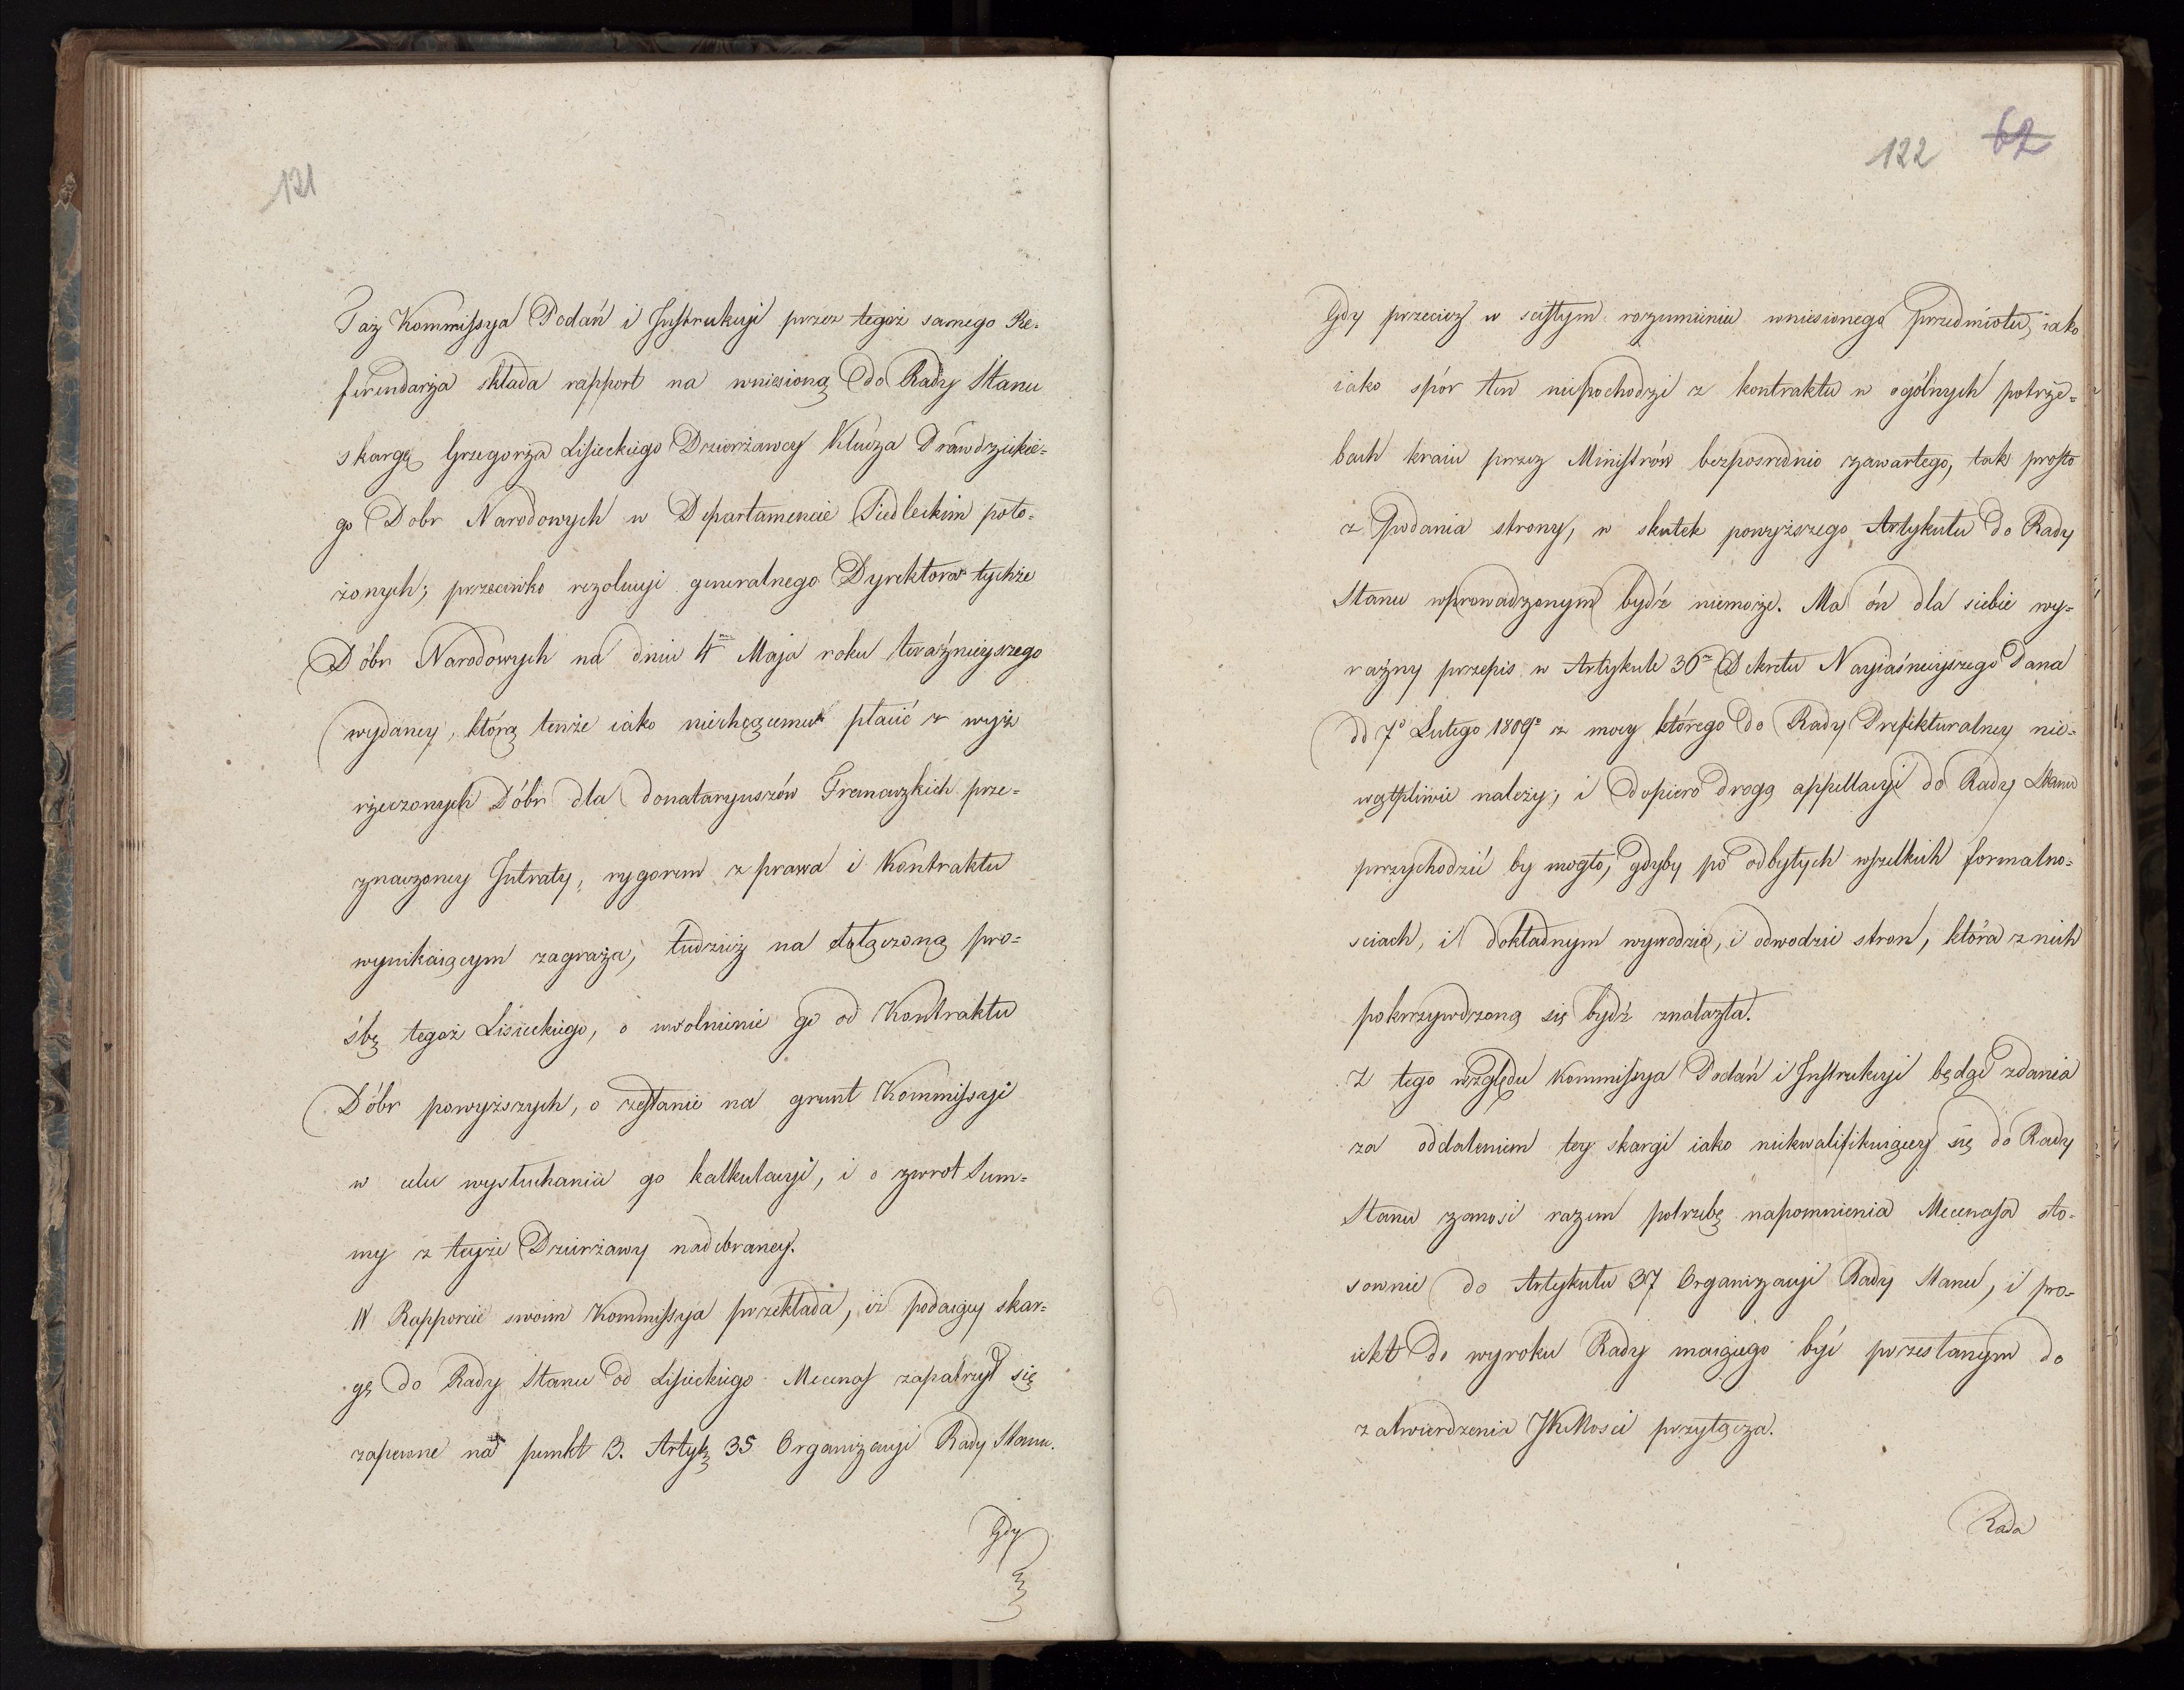 121
Taż Kommissya Podań i Instrukcyi przez tegoż samego Re-
ferendarza składa rapport na wniesioną do Rady Stanu
skargę Grzegorza Lisieckiego Dzierżawcy Klucza Prawdzickie-
go Dobr Narodowych w Departamencie Siedleckim poło-
żonych; przeciwko rezolucyi generalnego Dyrektora tychże
Dóbr Narodowych na dniu 4m Maja roku teraźnieyszego
wydaney, którą tenże iako niechcącemu płacić z wyż
rzeczonych Dóbr dla donataryuszów Francuzkich prze-
znaczoney Intraty, rygorem z prawa i Kontraktu
wynikaiącym zagraża, tudzież na dołączoną pro-
śbę tegoż Lisieckiego, o uwolnienie go od Kontraktu
Dóbr powyższych, o zesłanie na grunt Kommissyi
w celu wysłuchania go kalkulacyi, i o zwrot Sum-
my z teyże Dzierżawy nadebraney.
W Rapporcie swoim Kommissya przekłada, iż podaiący skar-
gę do Rady Stanu od Lisieckiego Mecenas zapatrzył się
zapewne na punkt 3. Artykę 35 Organizacyi Rady Stanu.
Gdy
122 62
Gdy przecież w scisłym rozumieniu wniesionego przedmiotu, iako
iako spór ten niepochodzi z kontraktu w ogólnych potrze-
bach kraiu przez Ministrów bezposrednio zawartego, tak prosto
z podania strony, w skutek powyższego Artykułu do Rady
Stanu wprowadzonym bydź niemoże. Ma ón dla siebie wy-
raźny przepis w Artykule 36m Dekretu Nayiaśnieyszego Pana
dd 7o Lutego 1809o z mocy którego do Rady Prefekturalney nie-
wątpliwie należy, i dopiero drogą appellacyi do Rady Stanu
przychodzić by mogło, gdyby po odbytych wszelkich formalno-
sciach, i dokładnym wywodzie, i odwodzie stron, która z nich
pokrzywdzoną się bydź znalazła.
Z tego względu Kommissya Podań i Instrukcyi będąc zdania
za oddaleniem tey skargi iako niekwalifikuiącey się do Rady
Stanu zanosi razem potrzebę napomnienia Mecenasa sto-
sownie do Artykułu 37 Organizacyi Rady Stanu, i pro-
iekt do wyroku Rady maiącego być przesłanym do
zatwierdzenia JKMosci przyłącza.
Rada